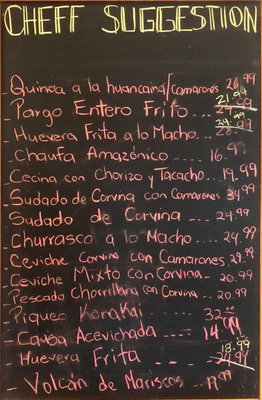 CHEFF SUGGESTION
- Quinoa a la huancaina/camarones 26.99
21.99
- Pargo Entero Frito ---
- Huevera Frita a lo Macho ..
- Chaufa Amazónico .... 16.99
- Cecina con Chorizo y Tacacho . 19.99
- Sudado de Corvina con Camarones 34.99
- Sudado de Corvina .... 24.99
- Churrasco a lo Macho .... 24.99
- Ceviche Corvina con Camarones 29.99
- Ceviche Mixto con Corvina . 20.99
- Pescado Chorrillana con Corvina . 20.99
- Piqueo KonaKai ... 32.00
- Causa Acevichada - 14.99
18.99
- Huevera Frita ....
- Volcán de Mariscos . 19.99